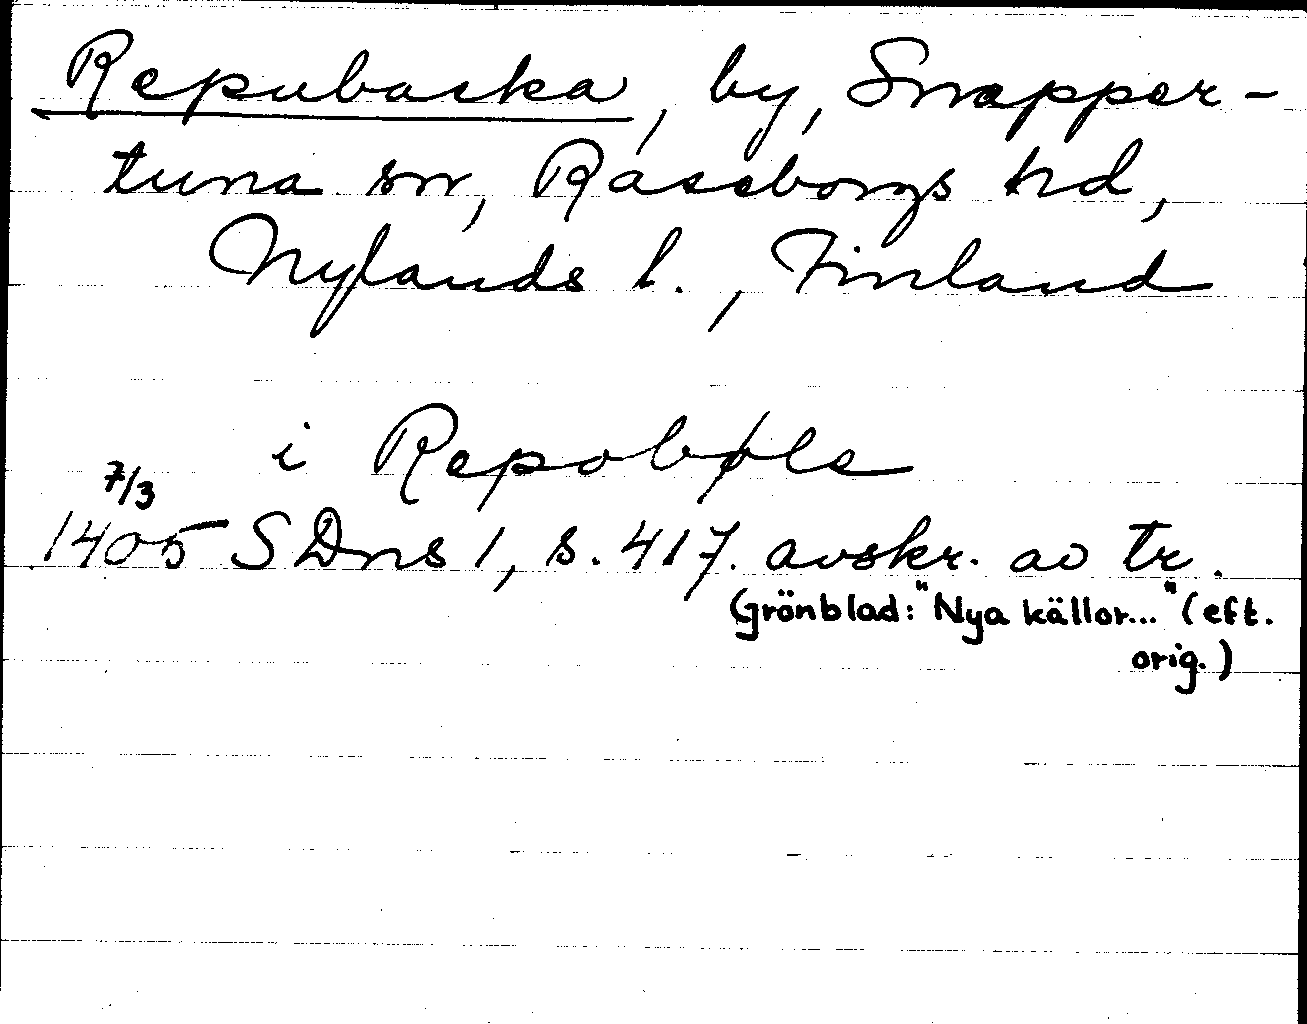 Repubacka, by, Snapper-
tuna sn, Raseborgs hd,
Nylands l., Finland
i Repobøle
7/3
1405 SDns 1, s. 417. avskr. av tr.
Grönblad: "Nya källor..." (eft.
orig.)